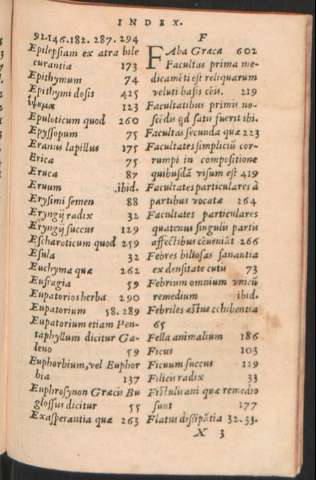 INDEX.
92.146.182.287.294
Epilepsiam ex atra bile
curantia 173
Epithymum 74
Epithymi dosis 425
ἵψημα 123
Epuloticum quod 260
Epyssopum 75
Eranus lapillus 175
Erica 75
Eruca 87
Eruum ibid.
Erysimi semen 88
Eryngij radix 32
Eryngij succus 129
Escharoticum quod 259
Esula 32
Euchyma quæ 262
Eufragia 59
Eupatorios herba 290
Eupatorium 58.289
Eupatorium etiam Pen-
taphyllum dicitur Ga-
leno 59
Euphorbium, vel Euphor
bia 137
Euphrosynon Græcis Bu
glossus dicitur 55
Exasperantia quæ 263
F
FAba Græca 602
Facultas prima me-
dicamēti est reliquarum
veluti basis cēs. 219
Facultatibus primis no-
scēdis qd satis fuerit ibi.
Facultas secunda quæ 223
Facultates simpliciū cor-
rumpi in compositione
quibusdā visum est 419
Facultates particulares à
partibus vocatæ 264
Facultates particulares
quatenus singulis partis
affectibus cōueniāt 266
Febres biliosas sanantia
ex densitate cutis 73
Febrium omnium vnicū
remedium ibid.
Febriles æstus cohibentia
65
Fella animalium 186
Ficus 103
Ficuum succus 129
Filicis radix 33
Fistulis ani quæ remedio
sunt 177
Flatus dissipātia 32.33.
X 3